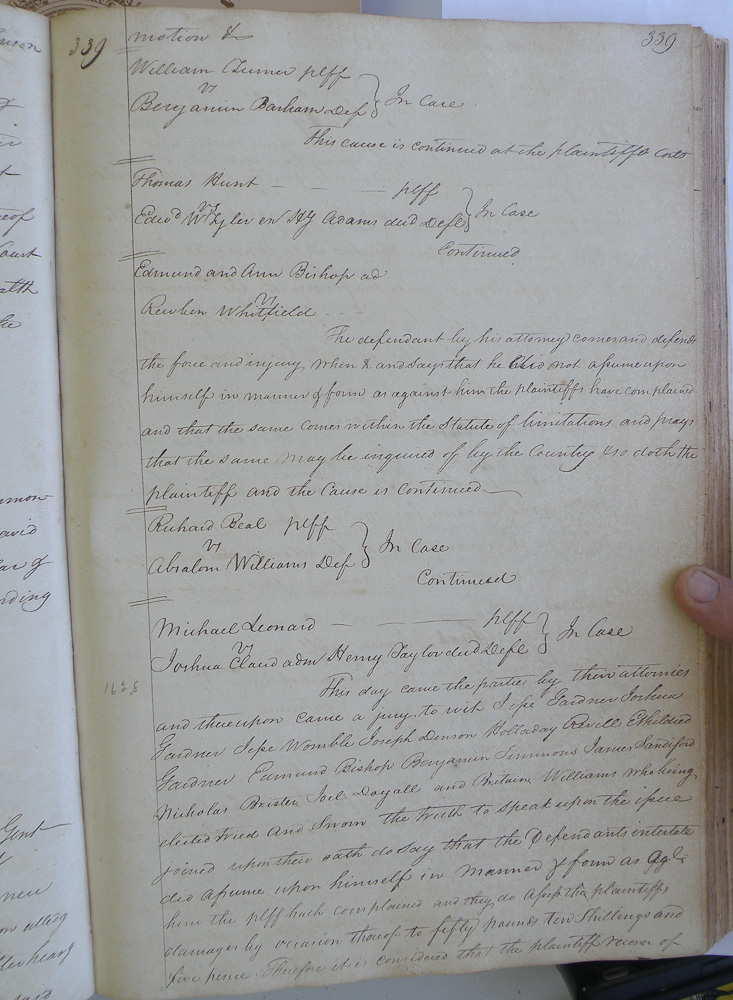 339
motion &
339
William Turner plff
vs
Benjamin Barham Def } In Case
This cause is continued at the plaintiffs Costs
Thomas Hunt — — — plff
vs
Edwd Wyler ex HG Adams decd Deft } In Case
Continued
Edmund and Ann Bishop ad
vs
Reuben Whitfield
The defendant by his attorney comes and defends
the force and injury when & and says that he did not assume upon
himself in manner & form as against him the plaintiffs have complained
and that the same comes within the Statute of limitations and prays
that the same may be inquired of by the Country & so doth the
plaintiff and the Cause is Continued
Richard Beal plff
vs
Absalom Williams Def } In Case
Continued
Michael Leonard — — plff
vs
Joshua Claud adm Henry Taylor decd Deft } In Case
1628
This day came the parties by their attornies
and thereupon came a jury to wit Jesse Gardner Joshua
Gardner Jesse Womble Joseph Denson Holladay Revell Etheldred
Gardner Edmund Bishop Benjamin Simmons James Sandiford
Nicholas Brister Joel Dayall and Britain Williams who being
elected tried and Sworn the truth to Speak upon the issue
joined upon their oath do Say that the Defendants intestate
did assume upon himself in manner & form as agt
him the plff hath complained and they do assess the plaintiffs
damages by occasion thereof to fifty pounds ten Shillings and
five pence. Therefore it is considered that the plaintiff recover of